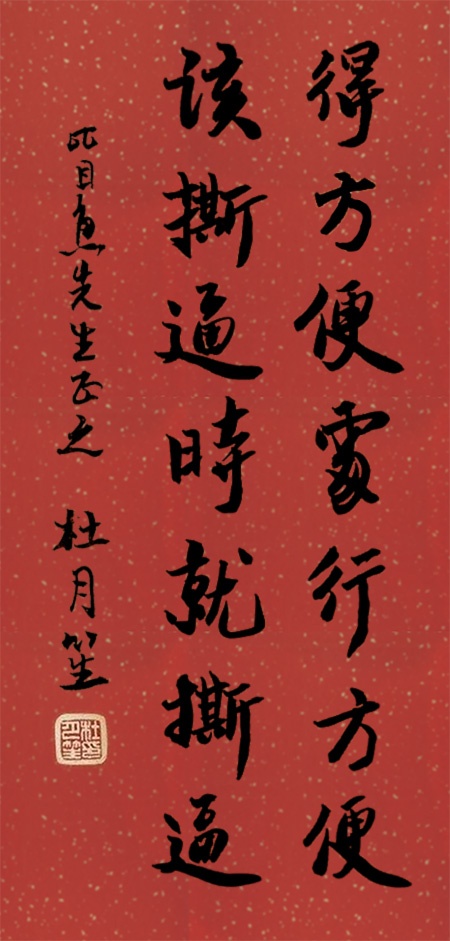 得方便處行方便
該撕逼時就撕逼
比目魚先生正之
杜月笙
杜月笙印